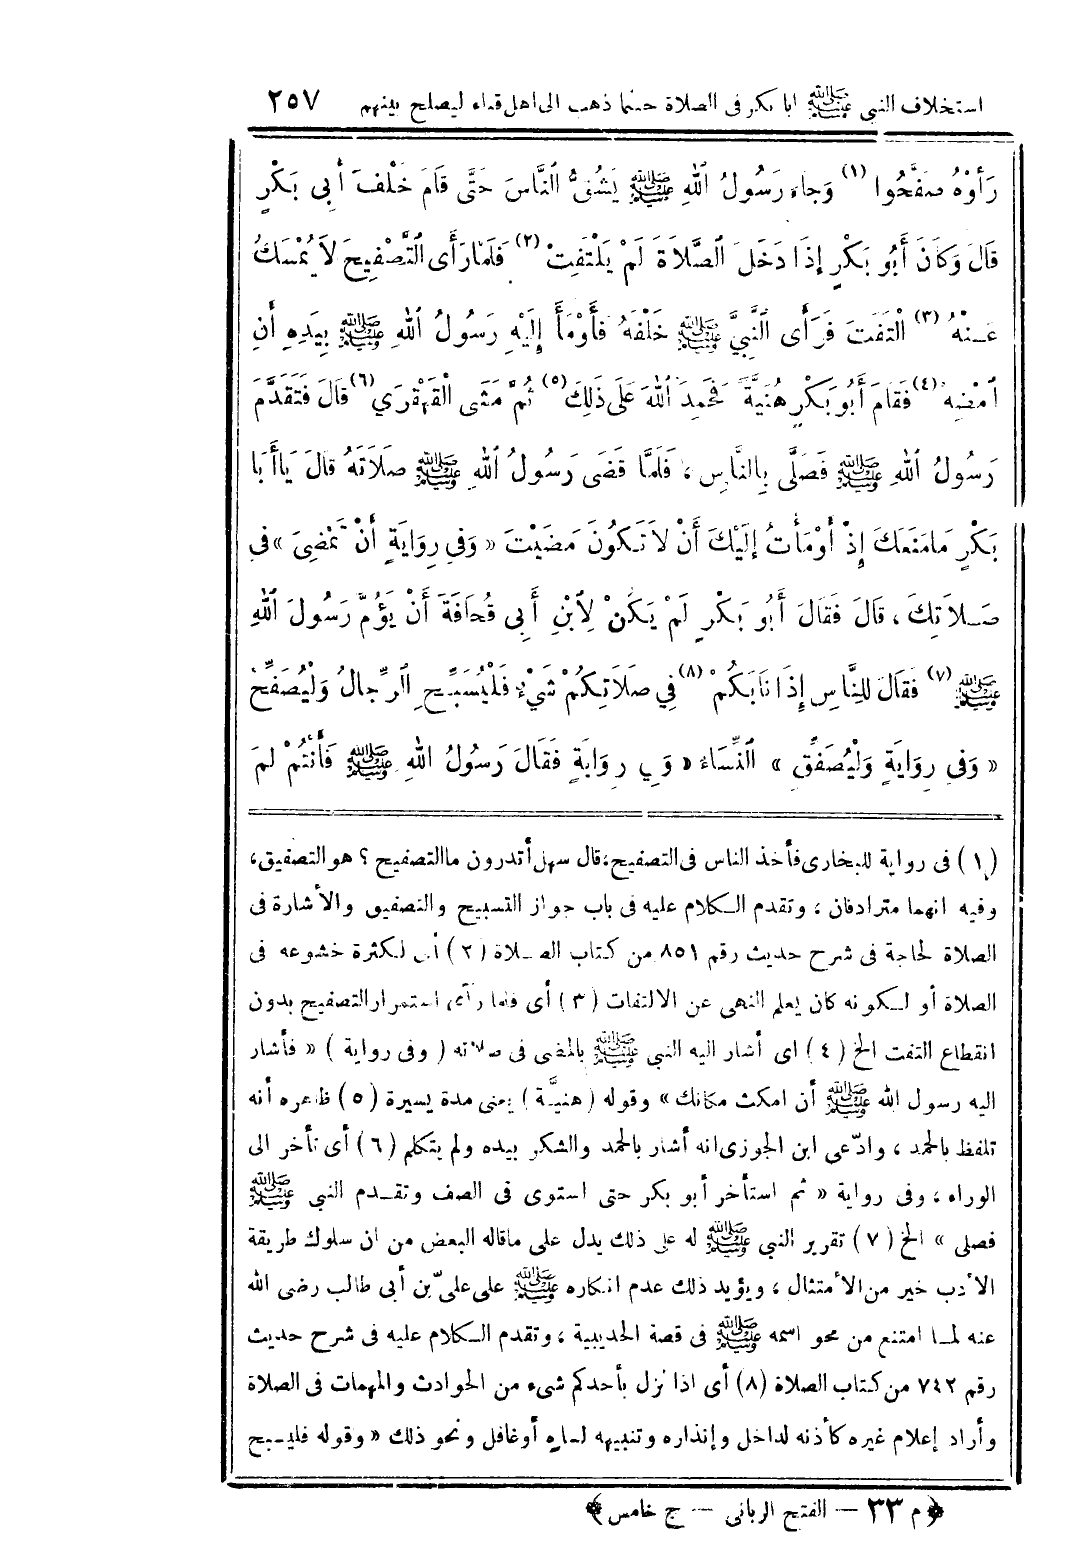 استخلاف النبي ﷺ ابا بكر فى الصلاة حينما ذهب الى اهل قباء ليصلح بينهم ٢٥٧
رَأَوْهُ صَفَّحُوا (١) وَجَاءَ رَسُولُ اللهِ ﷺ يَشُقُّ النَّاسَ حَتَّى قَامَ خَلْفَ أَبِى بَكْرٍ
قَالَ وَكَانَ أَبُو بَكْرٍ إِذَا دَخَلَ الصَّلَاةَ لَمْ يَلْتَفِتْ (٢) فَلَمَّا رَأَى التَّصْفِيحَ لَا يُمْسَكُ
عَنْهُ (٣) الْتَفَتَ فَرَأَى النَّبِيَّ ﷺ خَلْفَهُ فَأَوْمَأَ إِلَيْهِ رَسُولُ اللهِ ﷺ بِيَدِهِ أَنِ
امْضِهْ (٤) فَقَامَ أَبُو بَكْرٍ هُنَيَّةً فَحَمِدَ اللهَ عَلَى ذَلِكَ (٥) ثُمَّ مَشَى الْقَهْقَرَي (٦) قَالَ فَتَقَدَّمَ
رَسُولُ اللهِ ﷺ فَصَلَّى بِالنَّاسِ ، فَلَمَّا قَضَى رَسُولُ اللهِ ﷺ صَلَاتَهُ قَالَ يَا أَبَا
بَكْرٍ مَا مَنَعَكَ إِذْ أَوْمَأْتُ إِلَيْكَ أَنْ لَا تَكُونَ مَضَيْتَ « وَفِي رِوَايَةٍ أَنْ تَمْضِىَ » فِى
صَلَاتِكَ ، قَالَ فَقَالَ أَبُو بَكْرٍ لَمْ يَكُنْ لِابْنِ أَبِى قُحَافَةَ أَنْ يَؤُمَّ رَسُولَ اللهِ
ﷺ (٧) فَقَالَ لِلنَّاسِ إِذَا نَابَكُمْ (٨) فِي صَلَاتِكُمْ شَيْءٌ فَلْيُسَبِّحِ الرِّجَالُ وَلْيُصَفِّحْ
« وَفِى رِوَايَةٍ وَلْيُصَفِّقِ » النِّسَاءُ « وَفِي رِوَايَةٍ فَقَالَ رَسُولُ اللهِ ﷺ فَأَنْتُمْ لِمَ
(١) فى رواية للبخارى فأخذ الناس فى التصفيح، قال سهل أتدرون ما التصفيح ؟ هو التصفيق،
وفيه انهما مترادفان ، وتقدم الكلام عليه فى باب جواز التسبيح والتصفيق والأشارة فى
الصلاة لحاجة فى شرح حديث رقم ٨٥١ من كتاب الصلاة (٢) أى لكثرة خشوعه فى
الصلاة أو لكونه كان يعلم النهى عن الالتفات (٣) أى فلما رأى استمرار التصفيح بدون
انقطاع التفت الخ (٤) اى أشار اليه النبى ﷺ بالمضى فى صلاته ( وفى رواية ) « فأشار
اليه رسول الله ﷺ أن امكث مكانك » وقوله ( هنيَّة ) يعنى مدة يسيرة (٥) ظاهره أنه
تلفظ بالحمد ، وادّعى ابن الجوزى انه أشار بالحمد والشكر بيده ولم يتكلم (٦) أى تأخر الى
الوراء ، وفى رواية « ثم استأخر أبو بكر حتى استوى فى الصف وتقدم النبى ﷺ
فصلى » الخ (٧) تقرير النبى ﷺ له على ذلك يدل على ما قاله البعض من ان سلوك طريقة
الأدب خير من الأمتثال ، ويؤيد ذلك عدم انكاره ﷺ على علىّ بن أبى طالب رضى الله
عنه لما امتنع من محو اسمه ﷺ فى قصة الحديبية ، وتقدم الكلام عليه فى شرح حديث
رقم ٧٤٢ من كتاب الصلاة (٨) أى اذا نزل بأحدكم شىء من الحوادث والمهمات فى الصلاة
وأراد إعلام غيره كأذنه لداخل وإنذاره وتنبيهه لساه أو غافل ونحو ذلك « وقوله فليسبح
﴿ م ٣٣ — الفتح الربانى — ج خامس ﴾